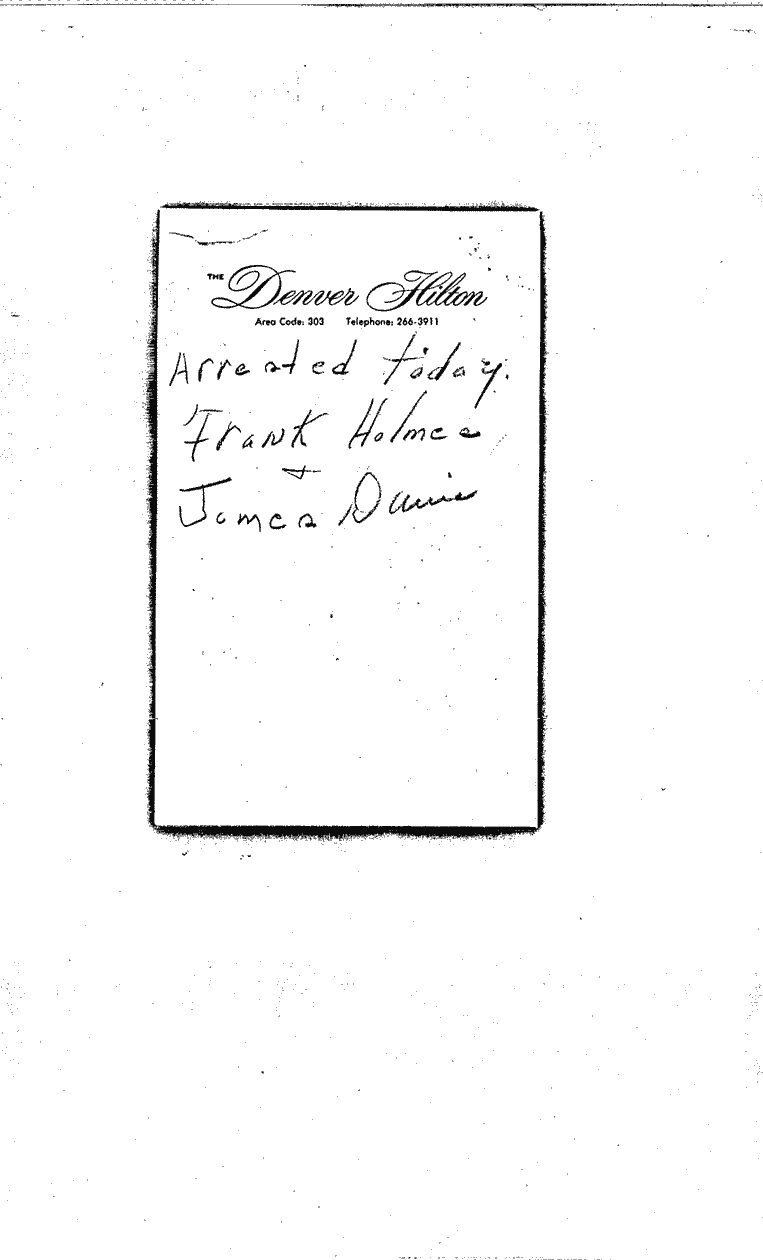 THE Denver Hilton
Area Code: 303 Telephone: 266-3911
Arrested today.
Frank Holmes
+
James Davis